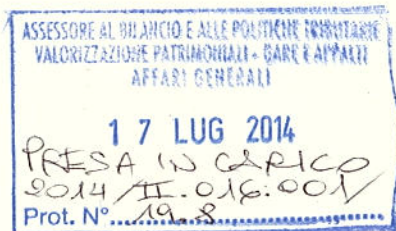 ASSESSORE AL BILANCIO E ALLE POLITICHE TRIBUTARIE
VALORIZZAZIONE PATRIMONIALI - GARE E APPALTI
AFFARI GENERALI
17 LUG 2014
PRESA IN CARICO
2014/II.016.001/
Prot. N°....19.8....